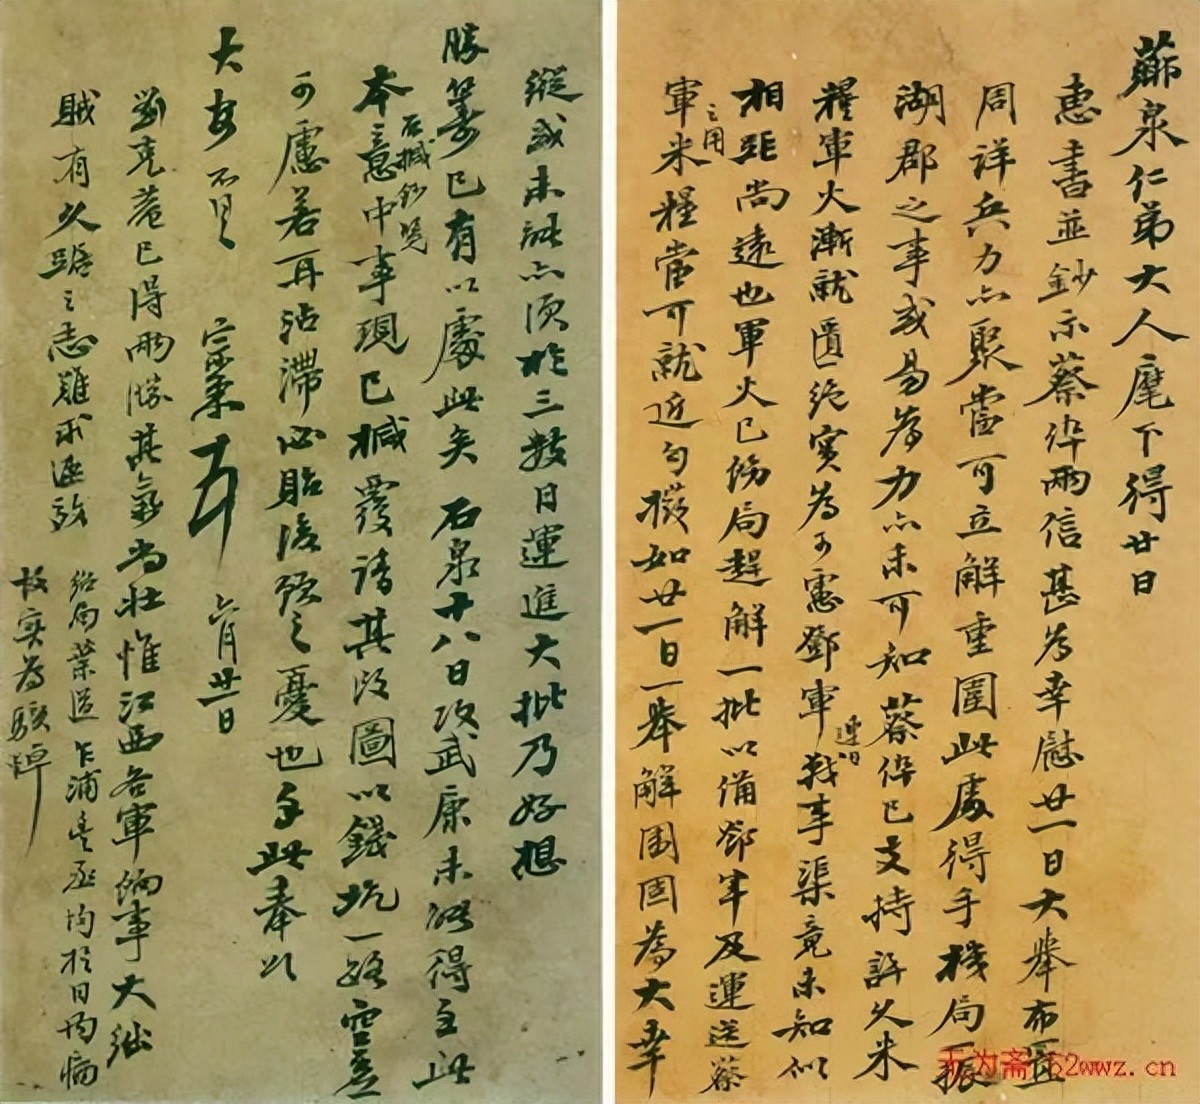 蘅泉仁弟大人麾下得廿日
惠書並鈔示蔡倅兩信甚為幸慰廿一日大舉布置
周详兵力亦聚當可立解重圍此處得手機局一振
湖郡之事或易為力亦未可知蔡倅已支持許久米
糧軍火漸就匱絕實為可慮鄧軍連日戰事渠竟未知似
相距尚遠也軍火已飭局趕解一批以備鄧軍及運送蔡
軍之用米糧當可就近勻撥如廿一日一舉解圍固為大幸
縱或未能亦須於三數日運進大批乃好想
勝算已有以處此矣石泉十八日攻武康未能得主此
本意中事現已椷覆請其改圖以錢坑一路空虛
石椷鈔覽
可慮若再沾滯必貽後頸之憂也手此奉以
大安不具 宗棠 六月廿一日
劉克菴已得兩勝其氣尚壯惟江西各軍餉事大絀
賊有久踞之志難求速效
給局葉道乍浦 丞均於日均病
故實為駭悼
无为斋 52wwz.cn